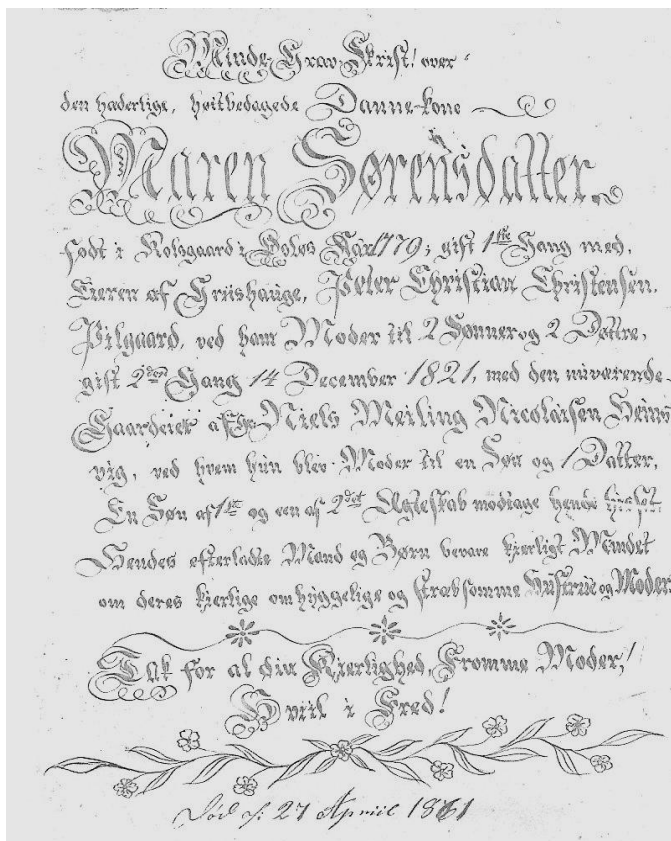 Minde Grav-Skrift! over
den hæderlige, høitbedagede Danne-kone
Maren Sørensdatter.
Født i Kolsgaard i 1779; gift 1ste Gang med,
Eieren af Griishauge, Peter Christian Christensen.
Pilgaard, ved ham Moder til 2 Sønner og 2 Døttre,
gift 2den Gang 14 December 1821, med den nuværende
Gaardeier Niels Meiling Nicolaisen Heins
vig, ved hvem hun blev Moder til en Søn og 1 Datter,
En Søn af 1ste og een af 2det Ægteskab modtage hende
Hendes efterladte Mand og Børn bevare kjerligt Mindet
om deres kjerlige omhyggelige og strabsomme Hustrue og Moder
Tak for al din Kjerlighed, Fromme Moder!
Hviil i Fred!
Død 27 Apriil 1861